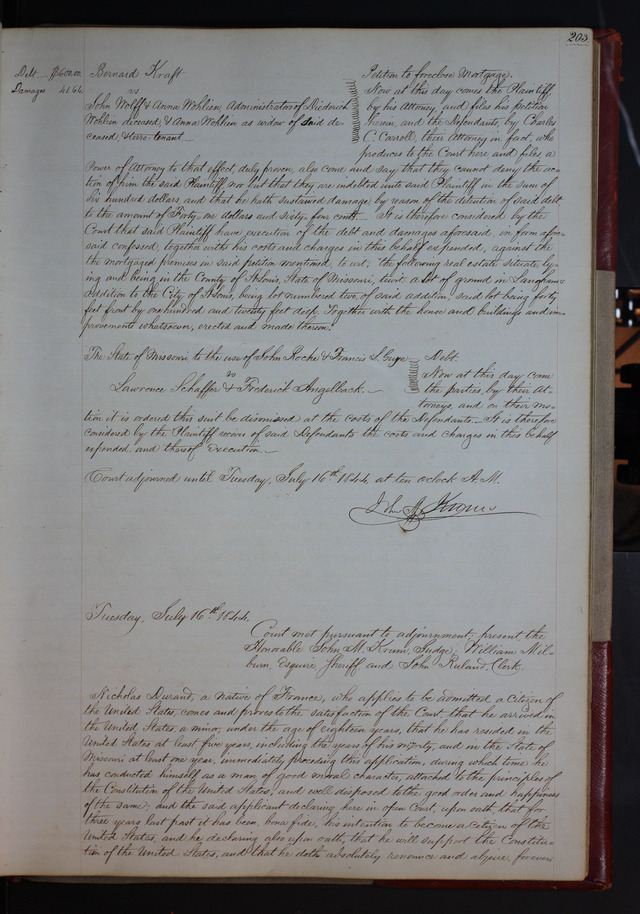 203
Debt $600.00
Damages 41.64
Bernard Kraft
vs
John Wolff & Anna Wohlien, Administrators of Diederich
Wohlien deceased, & Anna Wohlien as widow of said de-
ceased, & terre-tenant
Petition to foreclose Mortgage.
Now at this day comes the Plaintiff,
by his Attorney, and files his petition
herein, and the Defendants, by Charles
C. Carroll, their Attorney in fact, who
produces to the Court here and files, a
Power of Attorney to that effect, duly proven, also come and say that they cannot deny the ac-
tion of him the said Plaintiff nor but that they are indebted unto said Plaintiff in the sum of
Six hundred dollars, and that he hath sustained damage by reason of the detention of said debt
to the amount of Forty-one dollars and sixty-four cents. It is therefore considered by the
Court that said Plaintiff have execution of the debt and damages aforesaid, in form afore-
said confessed, together with his costs and charges in this behalf expended, against the
the mortgaged premises in said petition mentioned, to wit, "the following real estate situate, ly-
ing and being in the County of St Louis, State of Missouri, to wit: a lot of ground in Langham's
addition to the City of St Louis, being lot numbered two, of said addition, said lot being forty
feet front by one hundred and twenty feet deep. Together with the house and buildings and im-
provements whatsoever, erected and made thereon."
The State of Missouri to the use of John Roche & Francis L. Guye
vs
Lawrence Schaffer & Frederick Angelback.
Debt.
Now at this day come
the parties, by their At-
torneys, and on their mo-
tion it is ordered this suit be dismissed at the costs of the Defendants. It is therefore
considered by the Plaintiff recover of said Defendants the costs and charges in this behalf
expended, and thereof Execution.
Court adjourned until Tuesday, July 16th 1844, at ten oclock A.M.
John M. Krum
Tuesday, July 16th 1844.
Court met pursuant to adjournment, present, the
Honorable John M. Krum, Judge, William Mil-
burn, Esquire Sheriff and John Ruland, Clerk.
Nicholas Durant, a native of France, who applies to be admitted a Citizen of
the United States, comes and proves to the satisfaction of the Court, that he arrived in
the United States, a minor, under the age of eighteen years, that he has resided in the
United States at least five years, including the years of his minority, and in the State of
Missouri at least one year, immediately preceding this application, during which time he
has conducted himself as a man of good moral character, attached to the principles of
the Constitution of the United States, and well disposed to the good order and happiness
of the same; and the said applicant declaring here in open Court, upon oath, that for
three years last past it has been, bona fide, his intention to become a Citizen of the
United States, and he declaring also upon oath, that he will support the Constitu-
tion of the United States, and that he doth absolutely renounce and abjure, forever